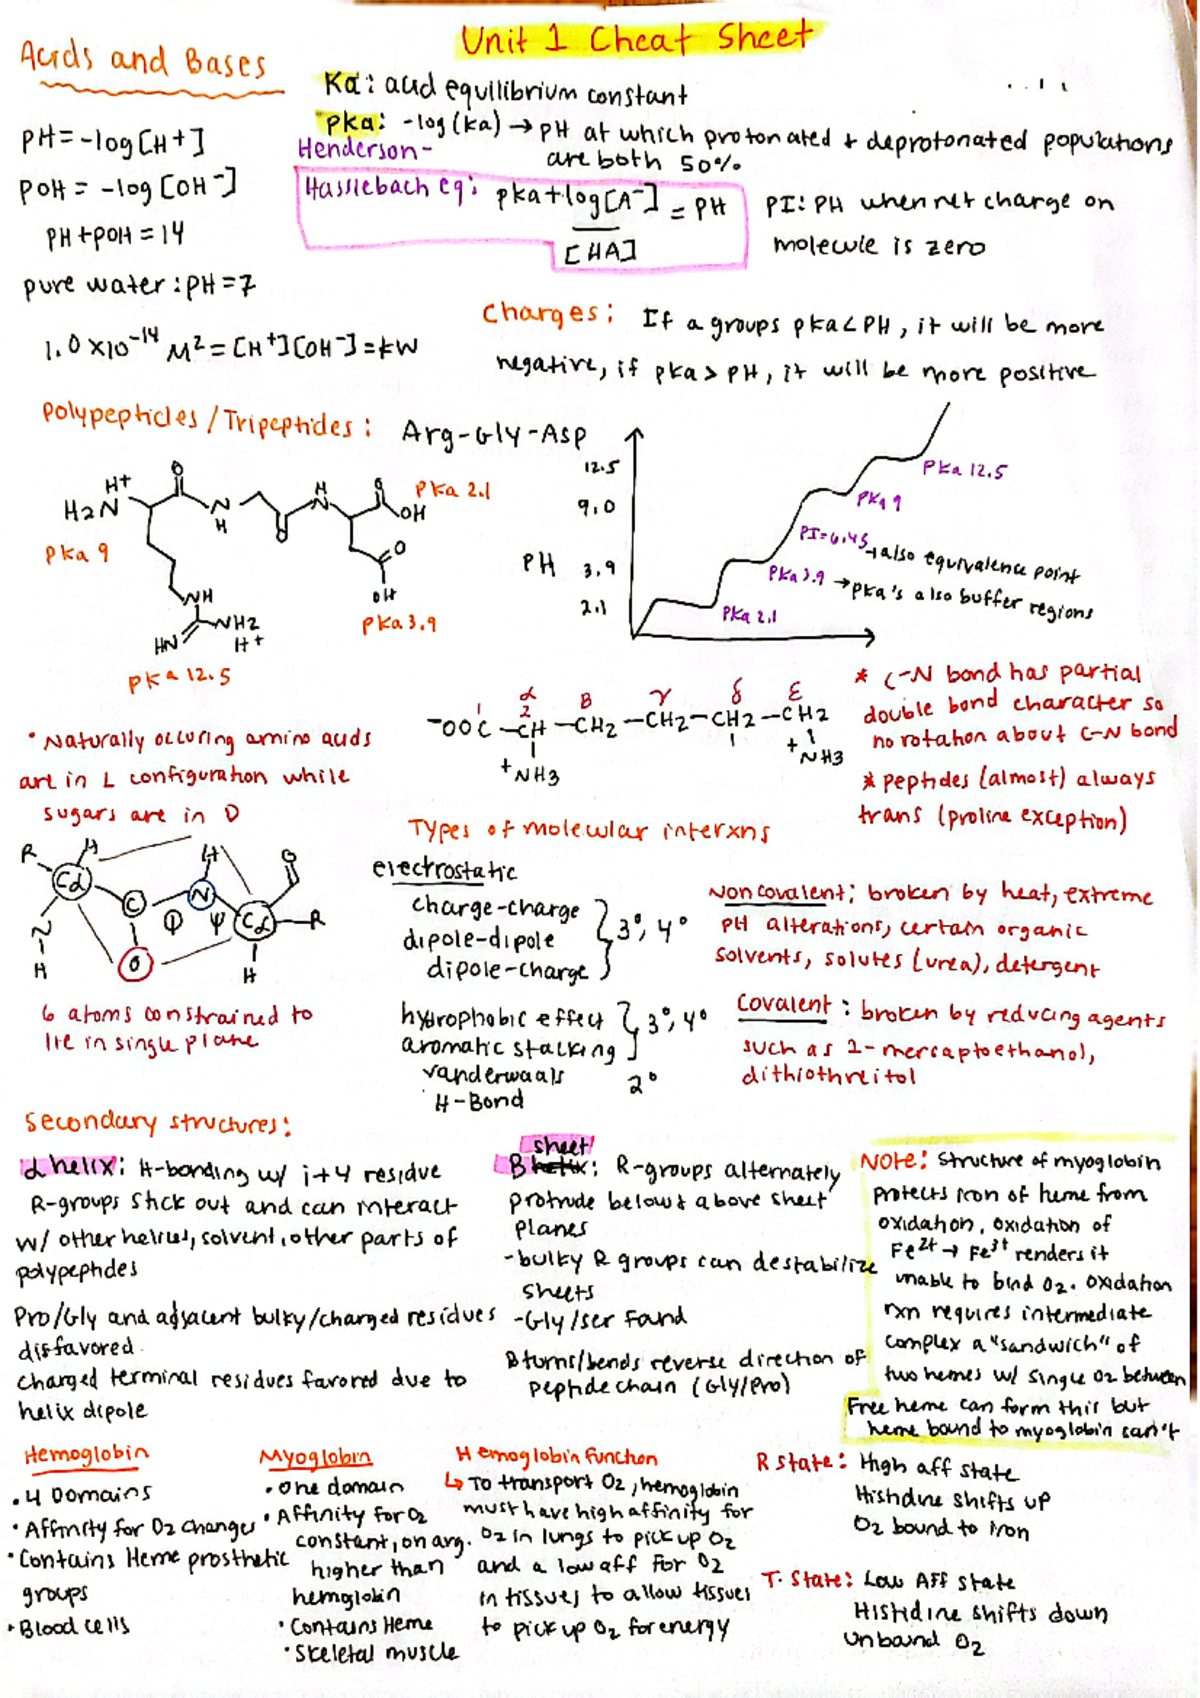 Unit 1 Cheat Sheet
Acids and Bases
Ka: acid equilibrium constant
pka: -log(ka) → pH at which protonated + deprotonated populations
are both 50%
PH = -log[H+]
POH = -log[OH-]
PH + POH = 14
pure water: PH = 7
1.0 x10-14 M2 = [H+][OH-] = kw
Henderson-
Hasslebach eq: pka + log [A-] = PH
[HA]
PI: PH when net charge on
molecule is zero
Charges: If a groups pka < PH, it will be more
negative, if pka > PH, it will be more positive
Polypeptides/Tripeptides: Arg-Gly-Asp
H+
H2N
O
N
H
O
H
N
O
OH
O
OH
PKa 9
PKa 2.1
PKa 3.9
NH
NH2
HN
H+
PKa 12.5
12.5
9.0
PH 3.9
2.1
PKa 12.5
PKa 9
PI=6.45 → also equivalence point
PKa 3.9 → pka's also buffer regions
PKa 2.1
1 α 2 B γ δ ε
-OOC -CH -CH2 -CH2 -CH2 -CH2
+NH3
+NH3
* C-N bond has partial
double bond character so
no rotation about C-N bond
* peptides (almost) always
trans (proline exception)
• Naturally occuring amino acids
are in L configuration while
sugars are in D
R
H
Cα
N
H
C
O
Φ
N
H
Ψ
Cα
O
R
H
6 atoms constrained to
lie in single plane
Types of molecular interxns
electrostatic
charge-charge
dipole-dipole
dipole-charge
} 3°, 4°
hydrophobic effect
aromatic stacking
} 3°, 4°
vanderwaals
H-Bond
2°
Noncovalent: broken by heat, extreme
PH alterations, certain organic
solvents, solutes (urea), detergent
Covalent: broken by reducing agents
such as 2-mercaptoethanol,
dithiothreitol
Secondary structures:
α helix: H-bonding w/ i+4 residue
R-groups stick out and can interact
w/ other helices, solvent, other parts of
polypeptides
Pro/Gly and adjacent bulky/charged residues
disfavored.
charged terminal residues favored due to
helix dipole
sheet
B helix: R-groups alternately
protrude below + above sheet
planes
-bulky R groups can destabilize
sheets
-Gly/ser Found
B turns/bends reverse direction of
peptide chain (Gly/Pro)
Note: Structure of myoglobin
protects iron of heme from
oxidation, oxidation of
Fe2+ → Fe3+ renders it
unable to bind O2. oxidation
rxn requires intermediate
complex a "sandwich" of
two hemes w/ single O2 between
Free heme can form this but
heme bound to myoglobin can't
Hemoglobin
• 4 Domains
• Affinity for O2 changes
• Contains Heme prosthetic
groups
• Blood cells
Myoglobin
• one domain
• Affinity for O2
constant, on avg.
higher than
hemoglobin
• Contains Heme
• Skeletal muscle
Hemoglobin Function
↳ To transport O2, hemoglobin
must have high affinity for
O2 in lungs to pick up O2
and a low aff for O2
in tissues to allow tissues
to pick up O2 for energy
R state: High aff state
Histidine shifts up
O2 bound to iron
T. State: Low Aff state
Histidine shifts down
unbound O2